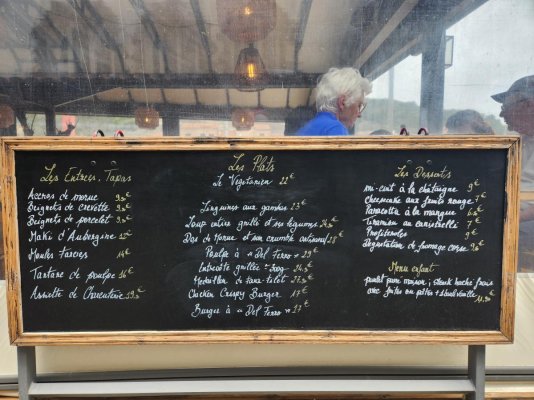 Les Entrées, Tapas
Accras de morue 9.50€
Beignets de crevette 9.50€
Beignets de porcelet 9.50€
Maki d'Aubergine 12€
Moules Farcies 14€
Tartare de poulpe 16€
Assiette de Charcuterie 19.50€
Les Plats
Le Végétarien 22€
Linguines aux gambas 23€
Loup entier grillé et ses légumes
Dos de Morue et son crumble 28€
Poulpe à "Del Ferro" 29€
Entrecôte grillée 300g
Médaillon de
Chicken Crispy Burger 17€
Burger à "Del Ferro" 17€
Les Desserts
mi-cuit à la châtaigne 9€
Cheesecake aux fruits rouge 7€
Pannacotta à la mangue
Tiramisu au canistrelli 7€
Profiteroles 9€
Dégustation de fromage corse
Menu enfant
poulet pané maison; steack haché frais
avec frites ou pâtes + 1 boule vanille